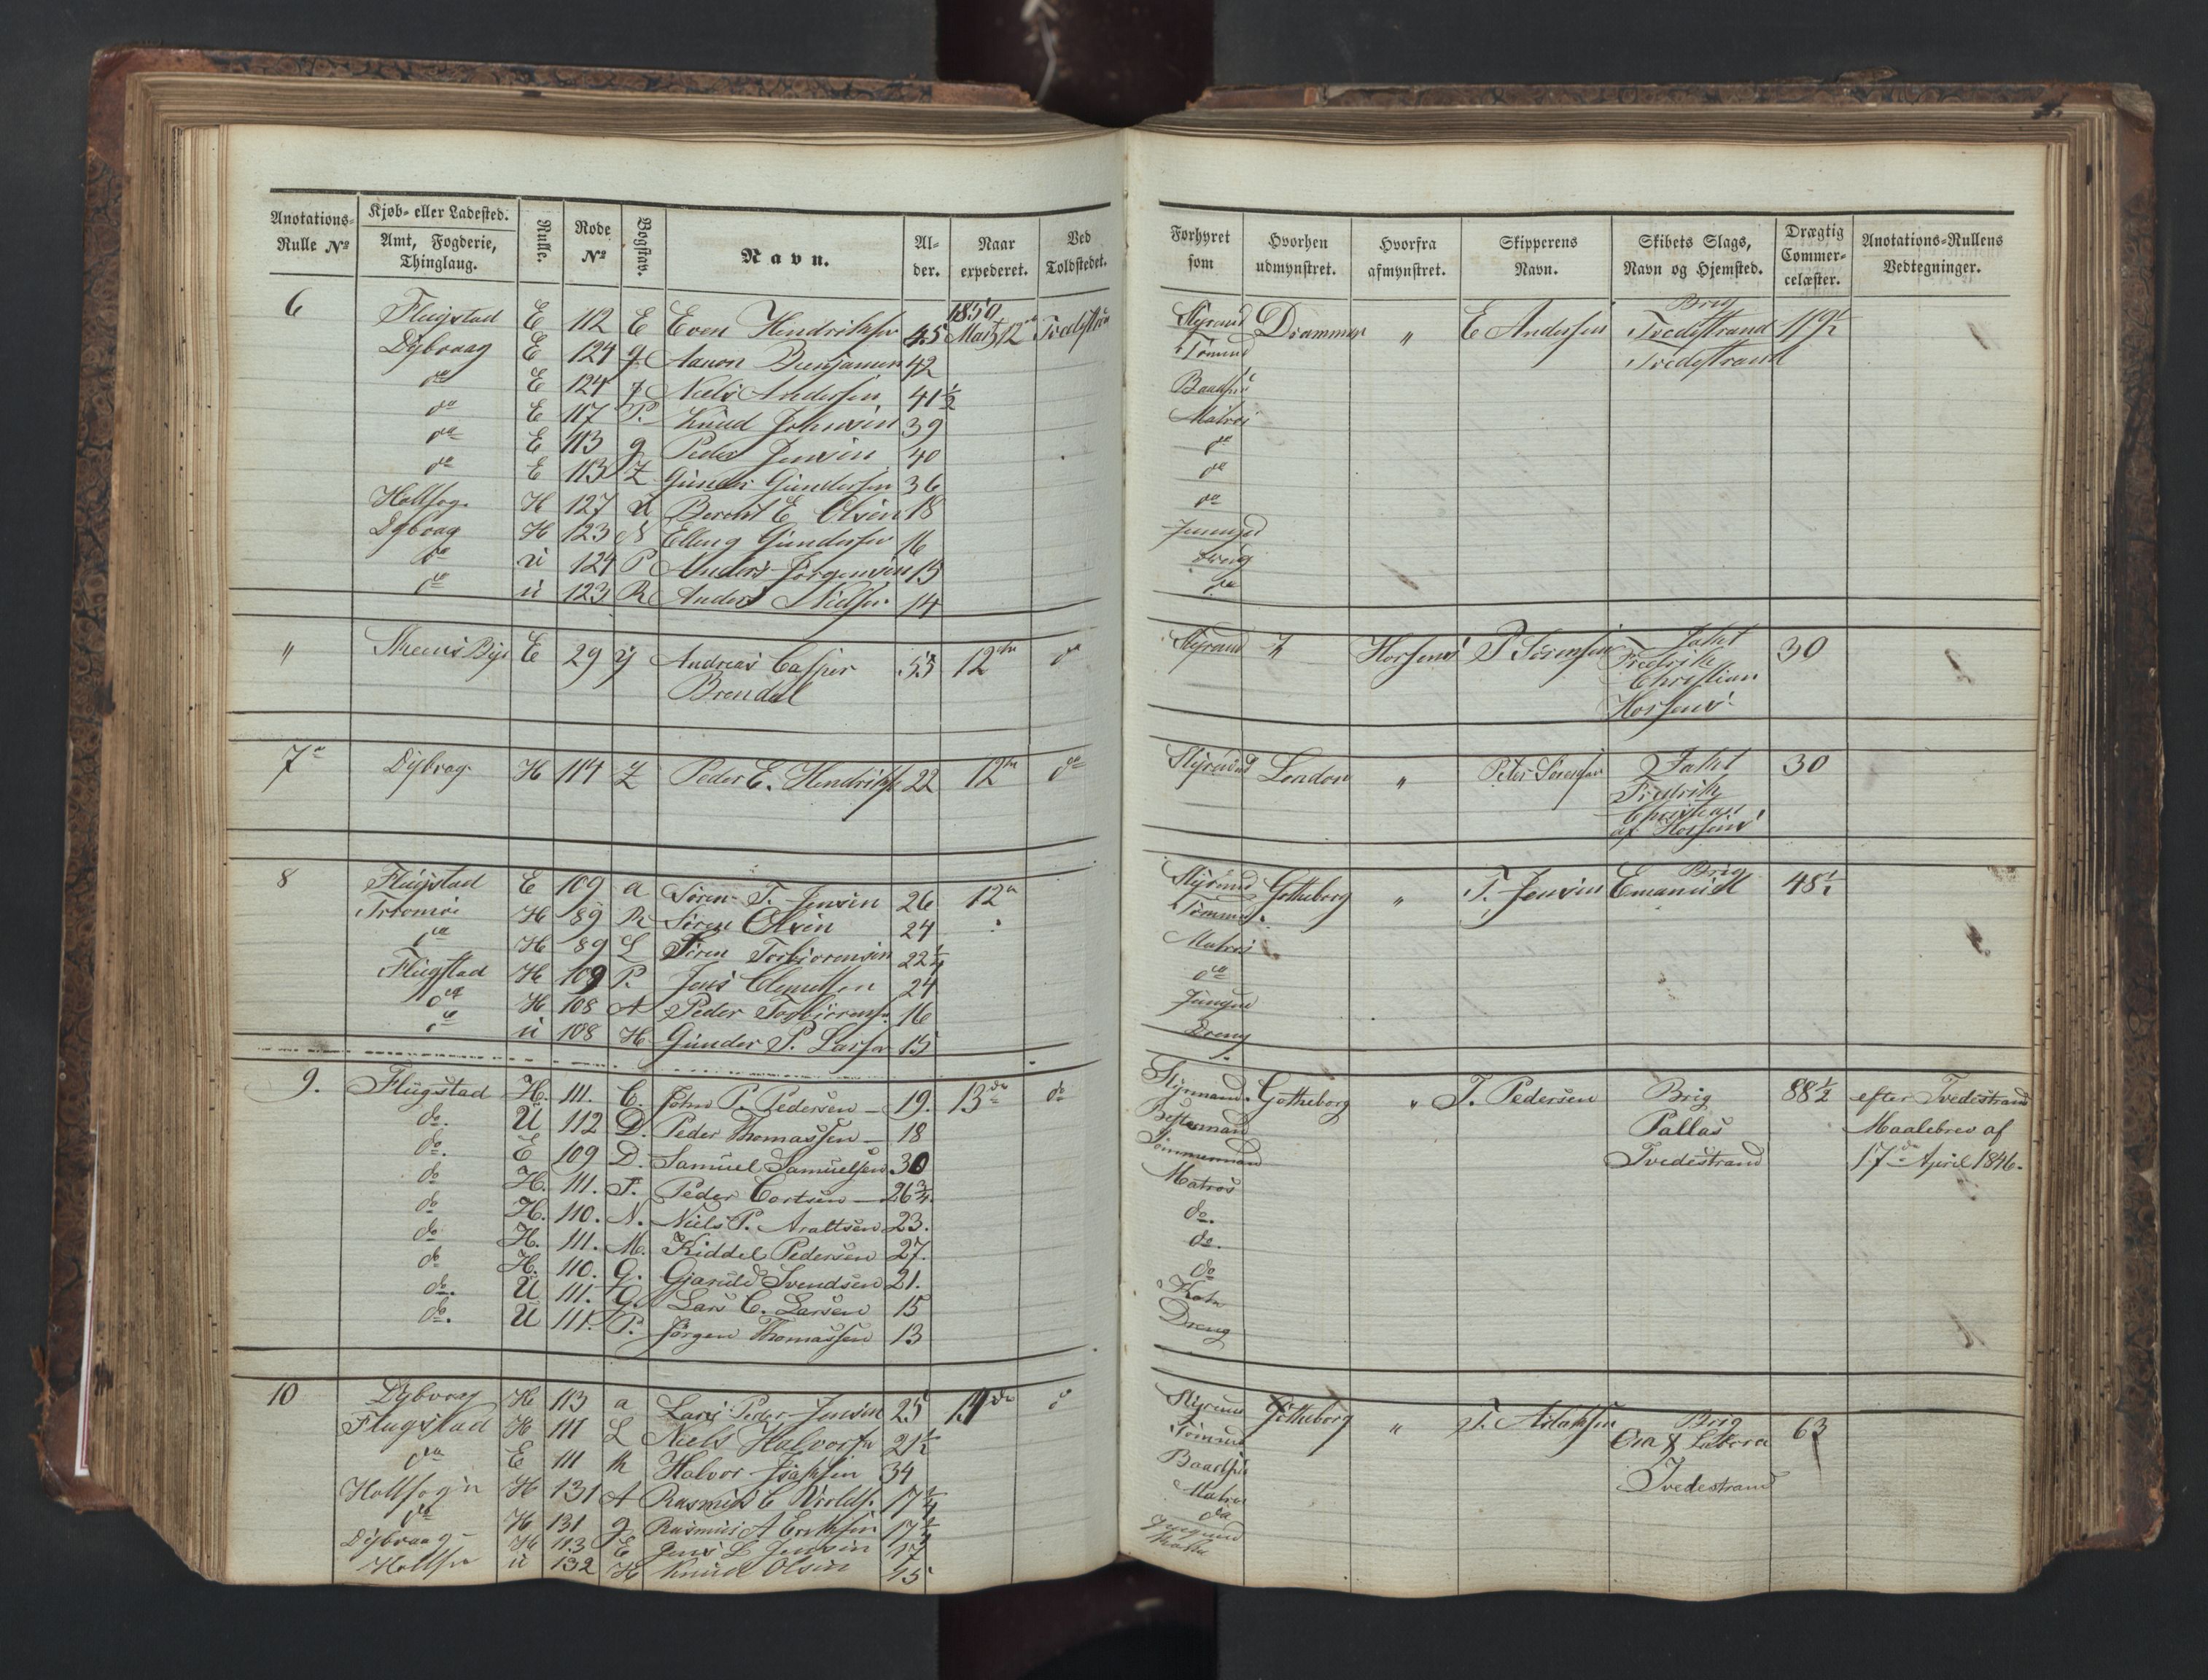 Anotations-Rulle № | Kjøb- eller Ladested. Amt, Fogderie, Thinglaug. | Rulle. | Rode № | Bogstav. | Navn. | Alder. | Naar expederet. | Ved Toldstedet.
6 Flugstad E 112 E Even Hendriksen 45 1850 Marts 12 Tvedestrand
Dybvaag E 124 g Aanon Benjamin 42
do E 124 Niels Andersen 41½
do E 117 P. Knud Johnsen 39
do E 113 g Peder Jensen 40
do E 113 Z Gunder Gundersen 36
Holtsog. H 127 Berent E Olsen 18
Dybvag H 123 N Elleng Gundersen 16
do U 124 P Anders Jörgensen 15
do U 123 R Anders Nielsen 14
" E 29 y Andreas Casper 12te do
Brendal
7 Dybvag H 114 Z Peder E. Hendriks 22 12te do
8 Flugstad E 109 a Sören T. Jensen 26 12
H 89 R Sören Olsen 24
do H 89 L Sören Torbiorensen 22¼
Flugstad H 109 P. Jens Clemetsen 24
do H 108 A Peder Torbiörens. 16
do U 108 H Gunder P. Larsen 15
9. Flugstad H. 111. C. John P. Pedersen 19. 13de do
do. U 112 D. Peder Thomassen 18
do. E 109 D. Samuel Samuelsen 30
do H. 111. P. Peder Cortsen 26¾
do H. 110. N. Niels P. Araltsen 23.
do H. 111. M. Kiddel Pedersen 27.
do H. 110. G. Gjaruld Svendsen 21.
do. U 111. G. Lars C. Larsen 15
do. U 111. P. Jörgen Thomassen 13
10 Dybvaag H 113 a Lars Peder Jensen 25 14de
Flugstad H 111 L Niels Halvorsen 21½
do E 111 Halvor Isaksen 34
Holtsogn H 131 A Rasmus C 17¼
do H 131 g Rasmus A Eriksen
Dybvaag H 113 E Jens L Jensen 17
U 132 H Knud Olsen 15
Forhyret som | Hvorhen udmynstret. | Hvorfra afmynstret. | Skipperens Navn. | Skibets Slags, Navn og Hjemsted. | Drægtig Commercelæster. | Anotations-Rullens Vedtegninger.
Styrmd Drammen " E Andersen Brig 119½
Tömmd Tvedestrand
Tvedestrand
Matros
do
do
do
Jungmd
Dreng
do
Styrmd Horsens P Sörensen Jakt 30
Fredrik
Christian
Horsens
Styrmd London " Peter Sörensen Jakt 30
Fredrik
Christian
af Horsens
Styrmd Gotheborg " T. Jensen Brig 48½
Tömmd Emanuel
Matros
do
Jungmd
Dreng
Styrmand. Gotheborg " T. Pedersen Brig 88½ efter Tvedestrand
Bestemand Pallas Maalebrev af
Tömmermand Tvedestrand 17de April 1846.
Matros
do.
do.
do
Kok
Dreng
Styrmd Gotheborg " T. Aslaksen Brig 63
Tömmd Ora & Labora
Tvedestrand
Matros
do